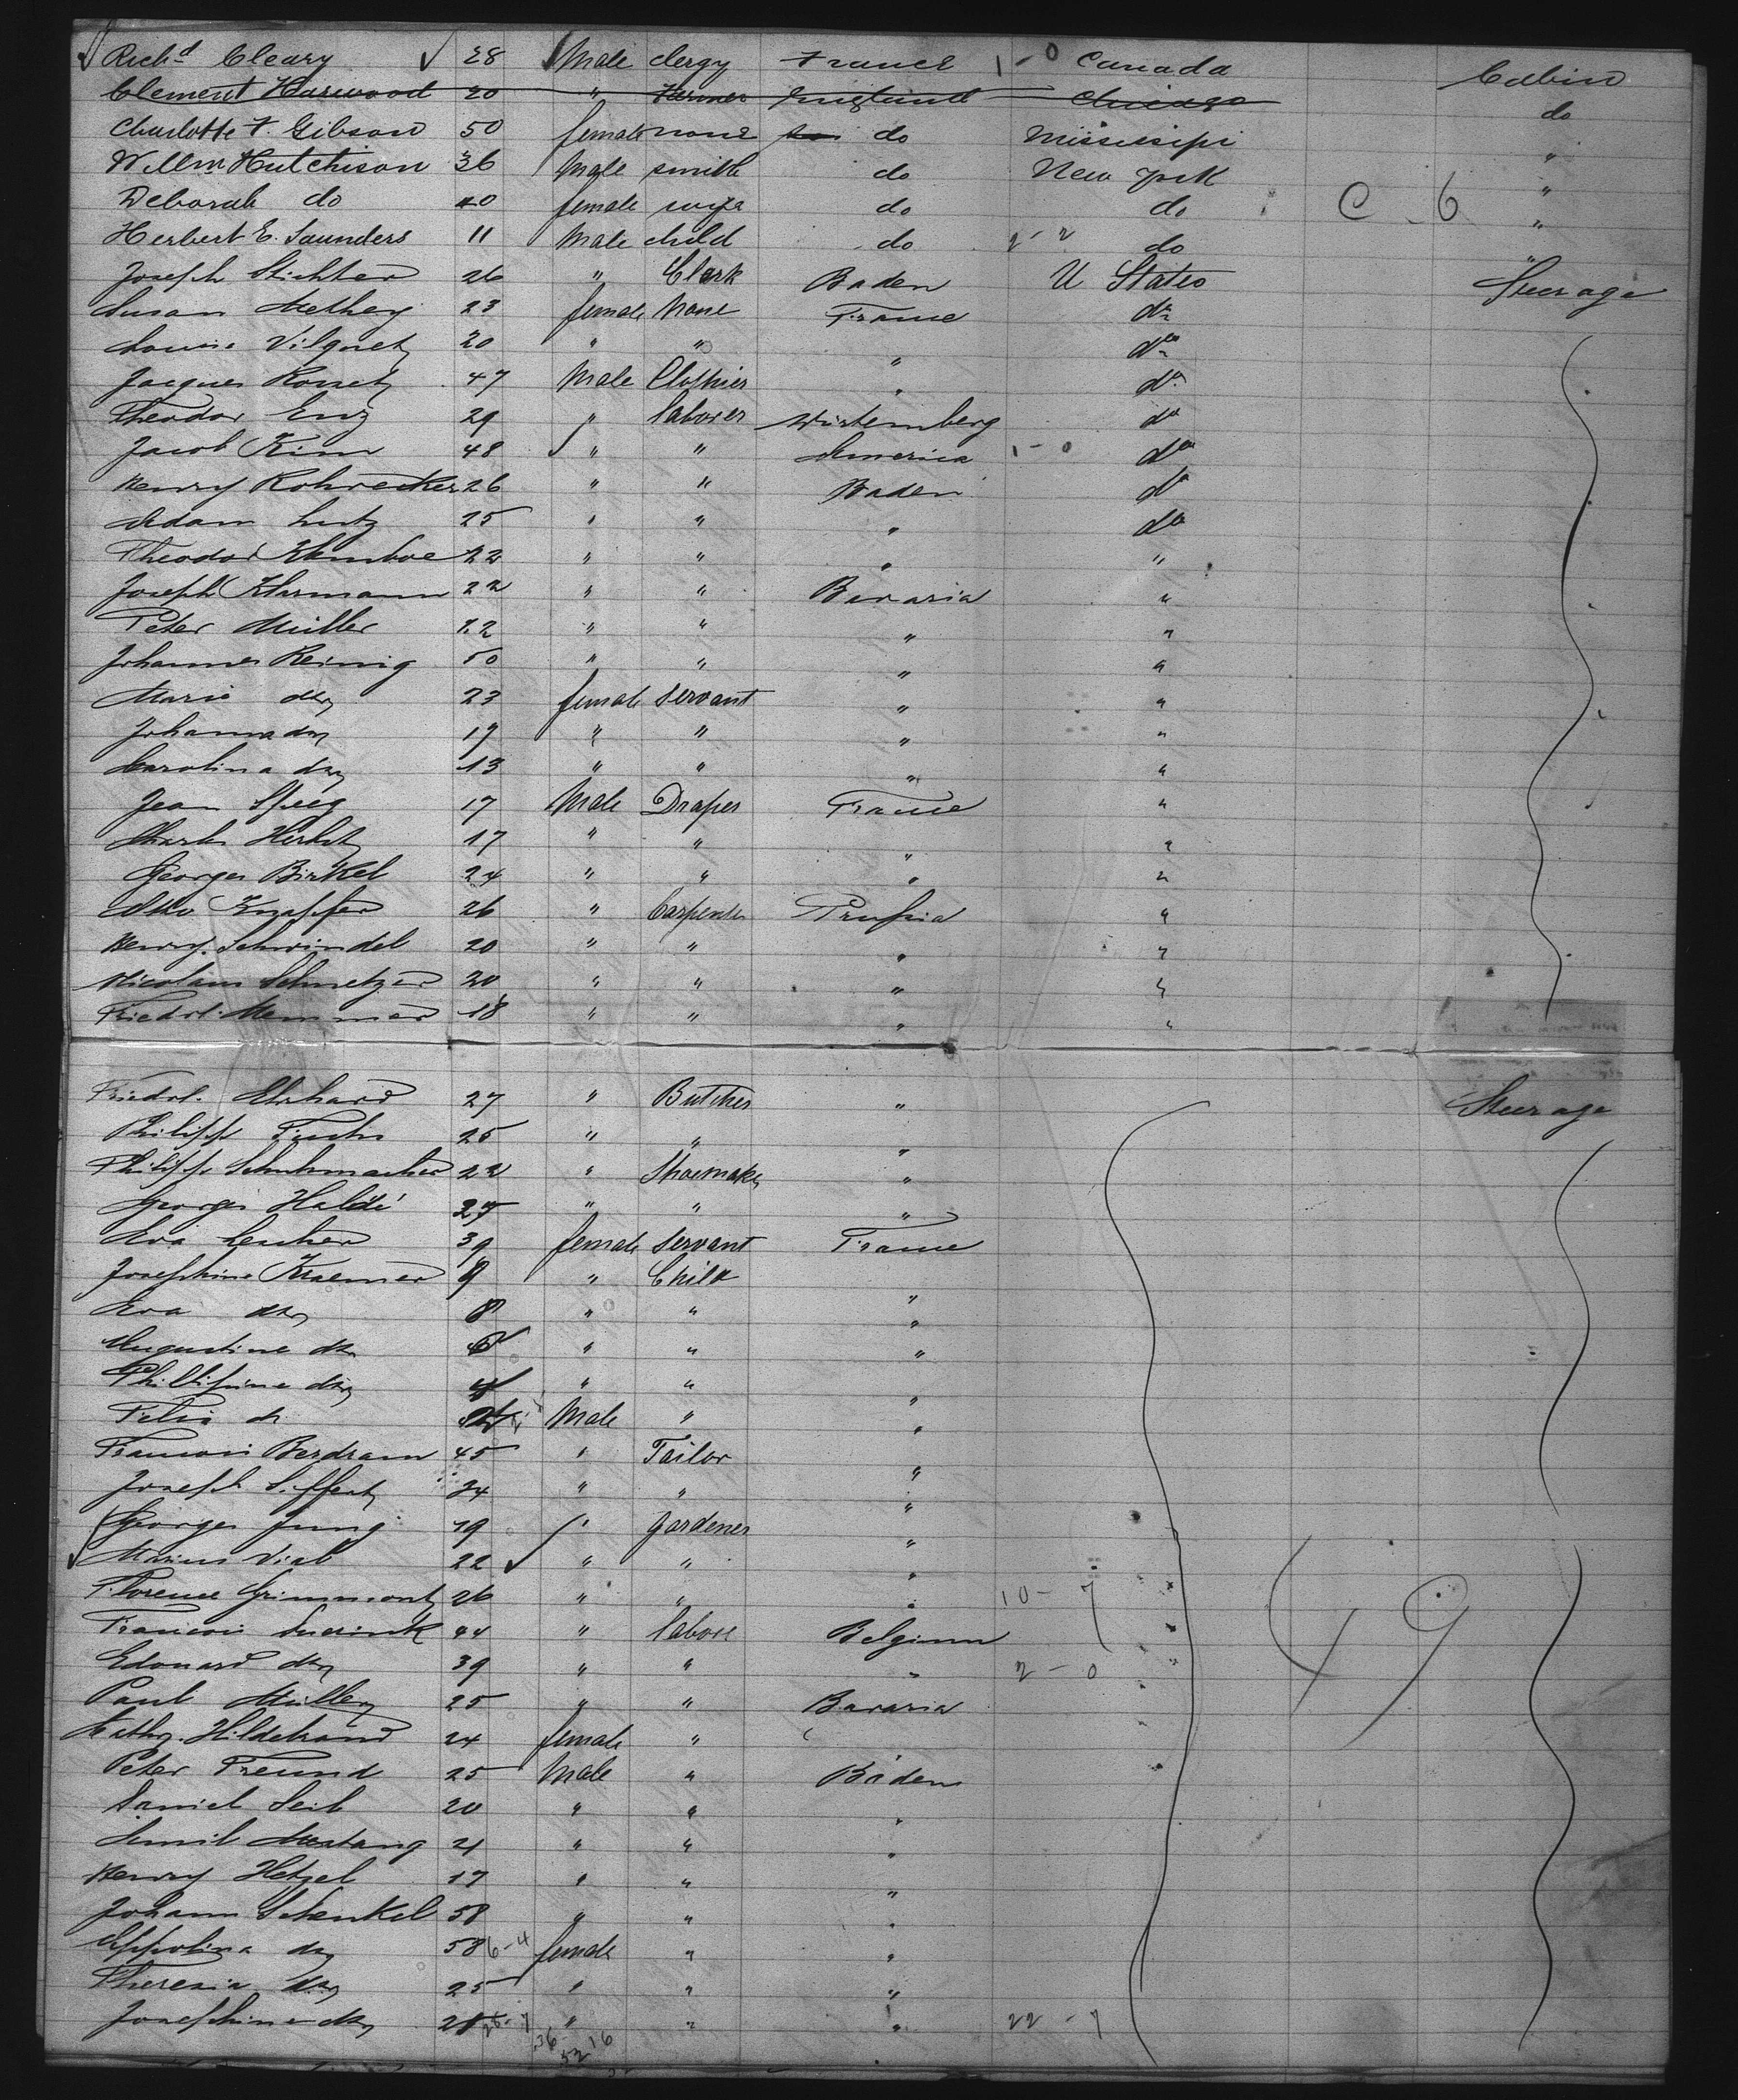 Richd Cleary 28 Male clergy France 1-0 Canada Cabin
Clement Harwood 20 " Farmer England Chicago do
Charlotte F. Gibson 50 female none do Mississipi "
Willm Hutchison 36 Male smith do New York "
Deborah do 40 female wife do do C-6 "
Herbert E. Saunders 11 Male child do 2-2 do "
Joseph Stichter 26 " Clerk Baden U States Steerage
Susan Methey 23 female None France do
Louise Vilquet 20 " " " do
Jacques 47 Male Clothier " do
Theodor Enz 29 " laborer Wurtemberg do
Jacob Kim 48 " " America 1-0 do
Henry Rohrecker 26 " " Baden do
Adam Lutz 25 " " " do
Theodor 22 " " " "
Joseph Klarmann 22 " " Bavaria "
Peter Müller 22 " " " "
Johannes Reinig 50 " " " "
Marie do 23 female servant " "
Johanna do 19 " " " "
Carolina do 13 " " " "
Jean 17 Male Draper France "
Charles Herbst 17 " " " "
Georges Birkel 24 " " " "
Otto Knapfer 26 " Carpenter Prussia "
Henry Schwindel 20 " " " "
Nicolaus Schmetzer 20 " " " "
Friedrl. Memmer 18 " " " "
Friedrl. Ehrhard 27 " Butcher " Steerage
Philipp Fuchs 25 " " "
Philipp Schuhmacher 22 " Shoemaker "
Georges 27 " " "
Eva 39 female servant France
Josephine Kraemer 9 " Child "
Eva do 8 " " "
Augustine do 6 " " "
Phillipine do 4 " " "
Felix do Male " "
Francois Berdram 45 " Tailor "
Joseph Siffert 34 " " "
Georges Jung 19 " gardener "
Marius Vial 22 " " "
Florence Grimmont 26 " " " 10-7 49
Francois 44 " labore Belgium
Edouard do 39 " " " 2-0
Paul Müller 25 " " Bavaria
Cathr. Hildebrand 24 female "
Peter Freund 25 Male " Baden
Daniel Seib 20 " " "
Emil 21 " " "
Henry Hetzel 17 " " "
Johann Schenkel 58 " " "
Appolina do 58 6-4 female " "
Theresia do 25 " " "
Josephine do 28 " " " 22-7
36 16
52